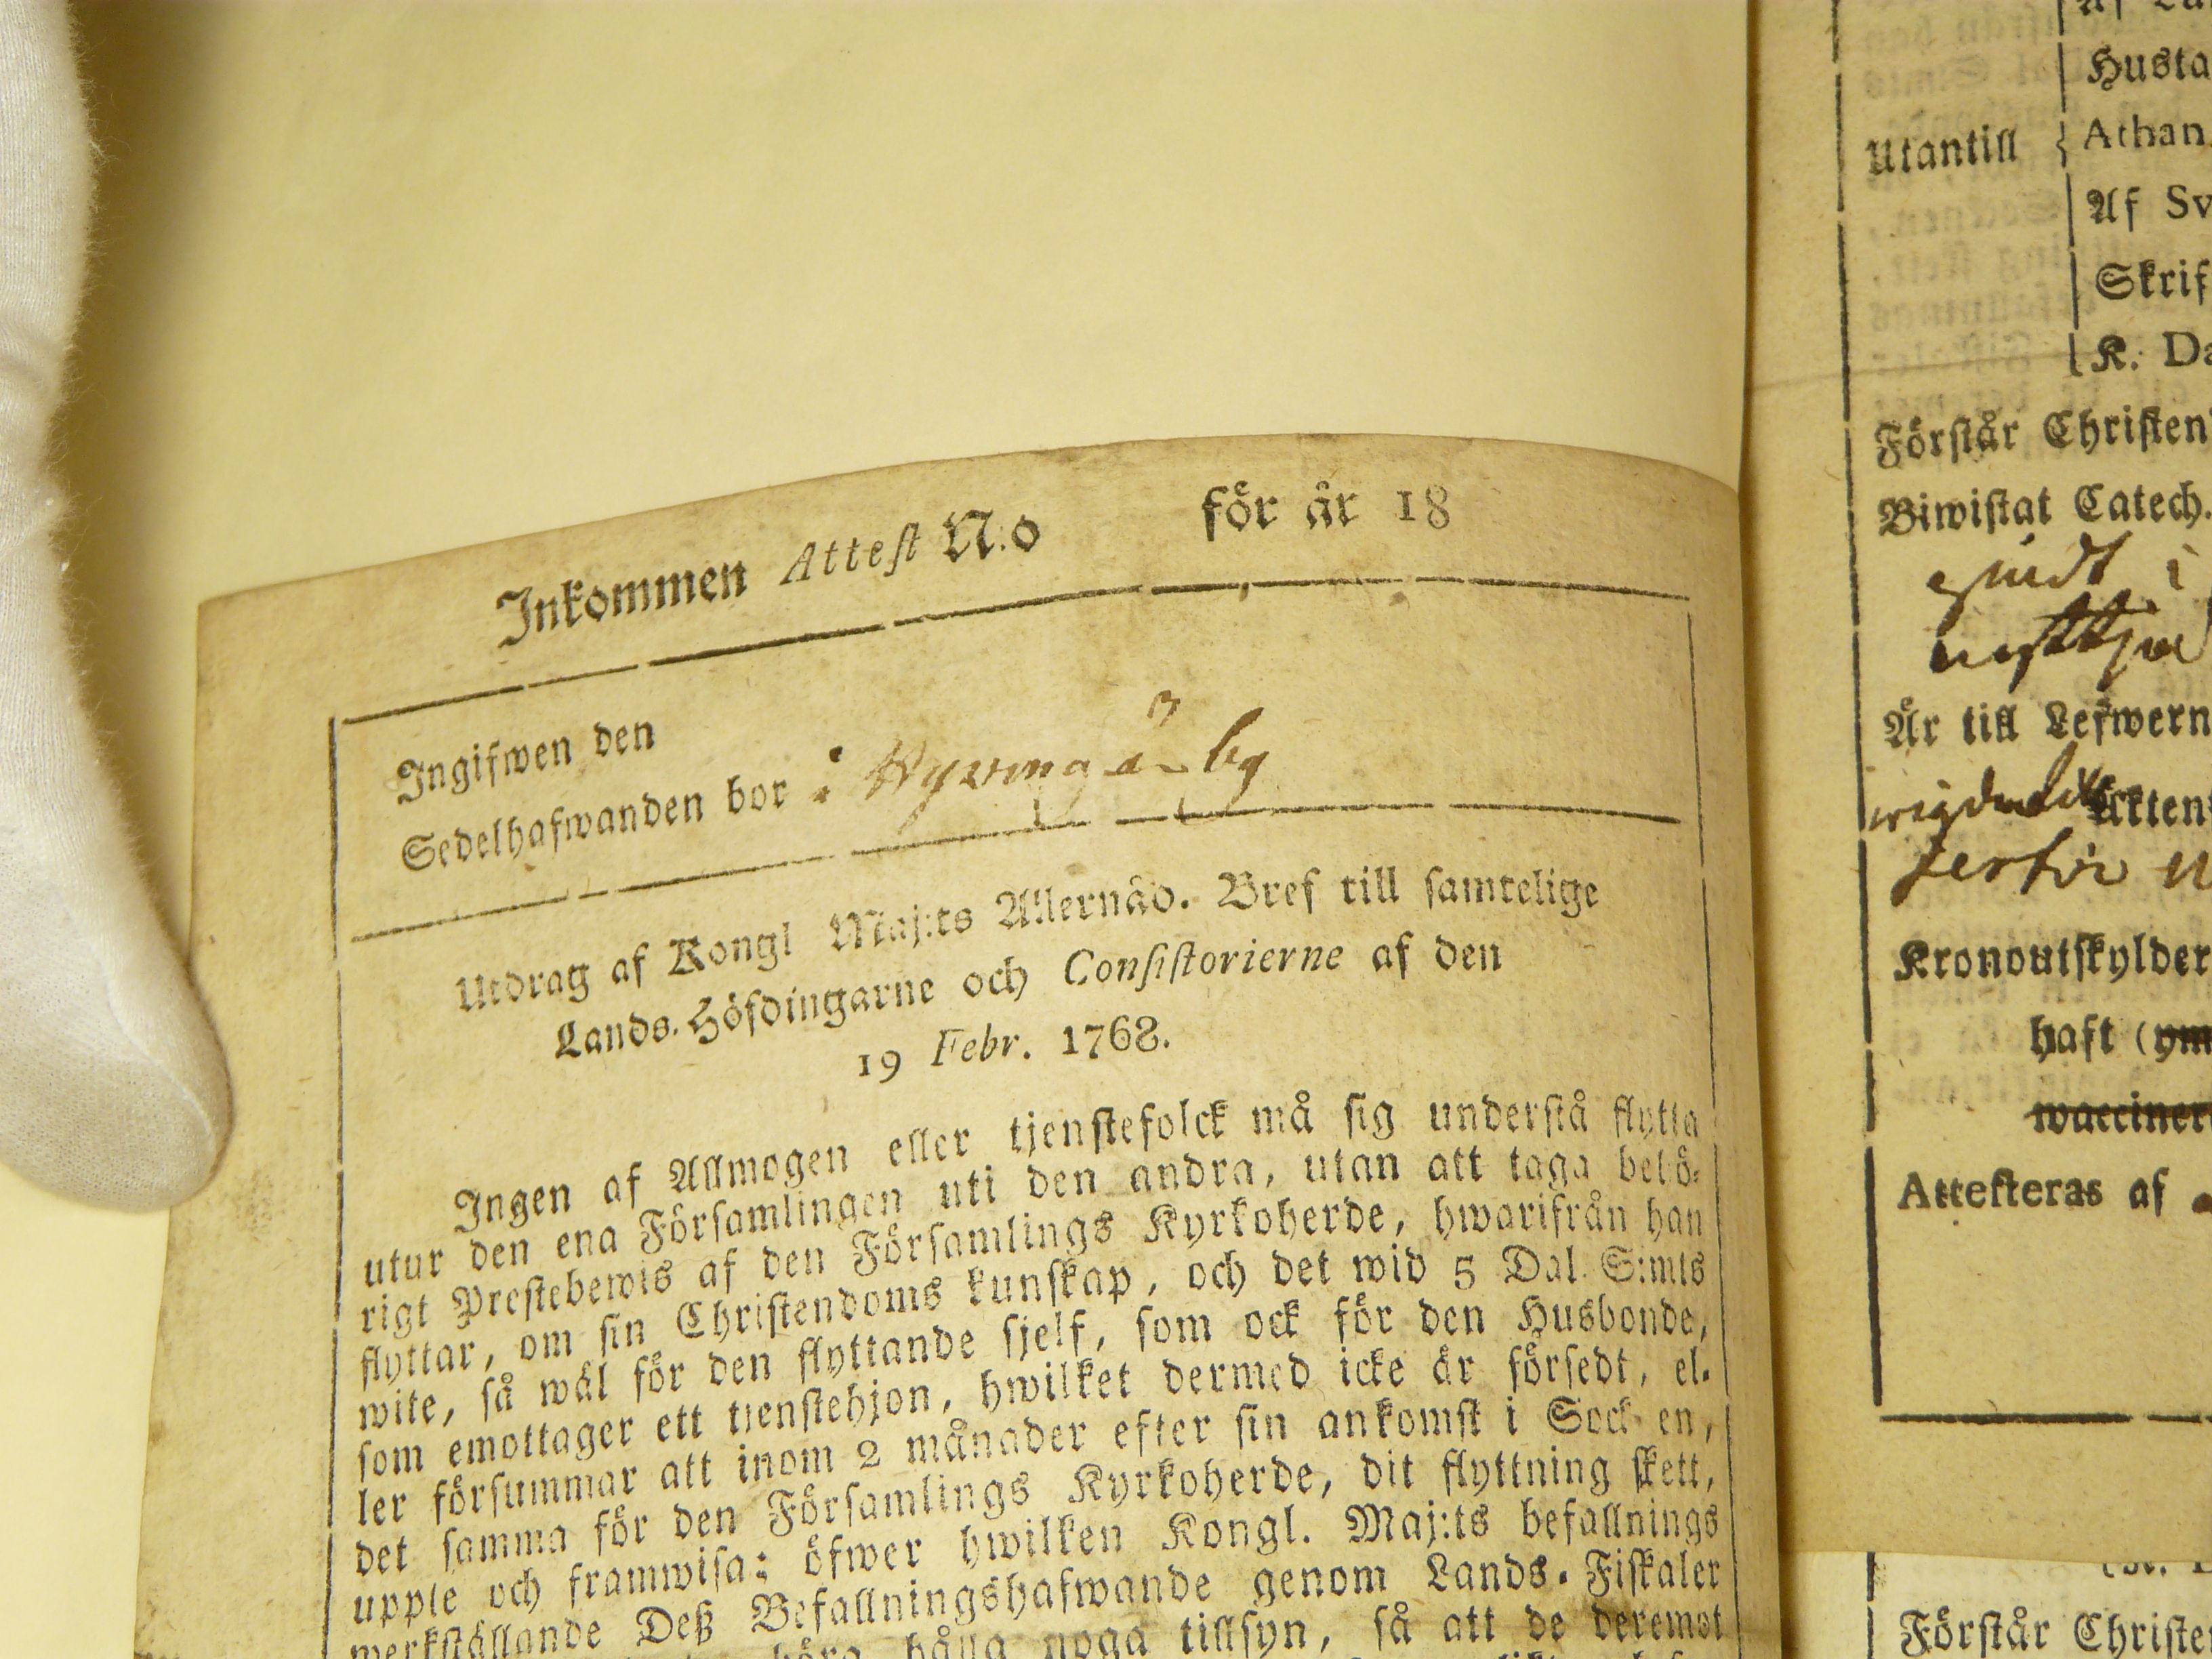 Inkommen Attest N:o för år 18
Ingifwen den
Sedelhafwanden bor i by
Utdrag af Kongl Maj:ts Allernåd. Bref till samtelige
Lands-Höfdingarne och Consistorierne af den
19 Febr. 1768.
Ingen af Allmogen eller tjenstefolck må sig understå flytta
utur den ena Församlingen uti den andra, utan att taga behö-
rigt Prestebewis af den Församlings Kyrkoherde, hwarifrån han
flyttar, om sin Christendoms kunskap, och det wid 5 Dal. S:mts
wite, så wäl för den flyttande sjelf, som ock för den Husbonde,
som emottager ett tjenstehjon, hwilket dermed icke är försedt, el-
ler försummar att inom 2 månader efter sin ankomst i Sock en,
det samma för den Församlings Kyrkoherde, dit flyttning skett,
upple och framwisa; öfwer hwilken Kongl. Maj:ts befallnings
werkställande Deß Befallningshafwande genom Lands-Fiskaler
hålla noga tillsyn, så att de deremot
Husta
Utantill
Athan
Af Sv
Skrif
K. Da
Förstår Christen
Biwistat Catech.
Är till Lefwern
Kronoutskylder
haft (
wacciner
Attesteras af
Förstår Christe